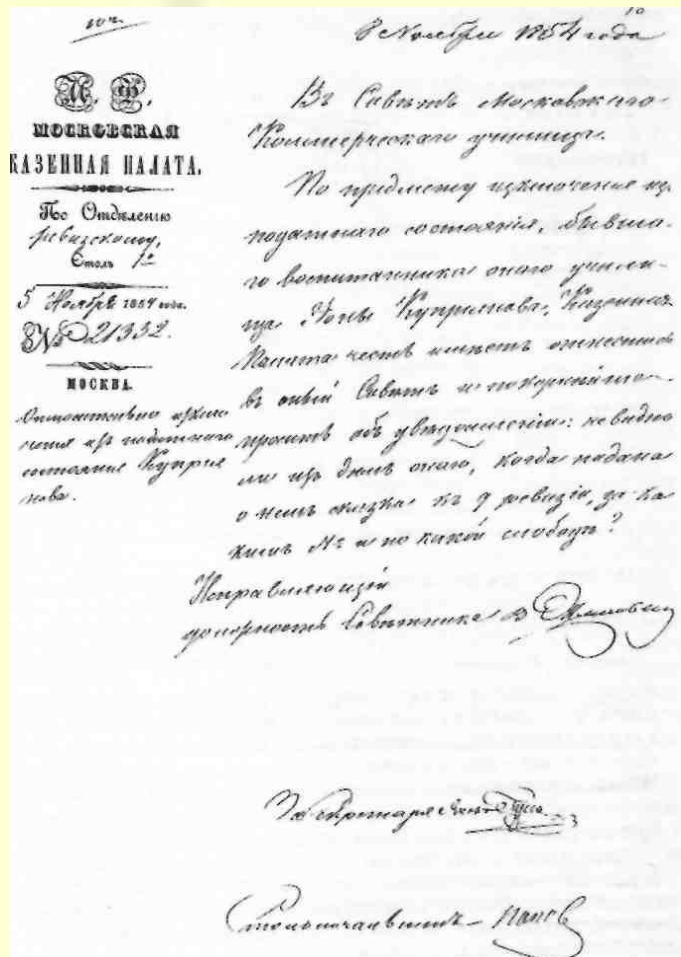 10
8 Ноября 1854 года
М. Ф.
МОСКОВСКАЯ
КАЗЕННАЯ ПАЛАТА.
По Отдѣленію
ревизскому,
Столъ 1й
5 Ноября 1854 года.
№ 21332.
МОСКВА.
Относительно исключенія изъ податнаго
состоянія Куприянова.
Въ Совѣтъ Московскаго
Коммерческаго училища.
По предмету исключенія изъ
податнаго состоянія, бывша-
го воспитанника онаго учили-
ща Куприянова, Казенная
Палата честь имѣетъ отнестись
въ оный Совѣтъ и покорнѣйше
проситъ объ увѣдомленіи: не видно
ли изъ дѣлъ онаго, когда подана
о немъ сказка къ 9 ревизіи, за ка-
кимъ № и по какой слободѣ?
Исправляющій
должность Совѣтника
За Секретаря
Столоначальникъ Попов